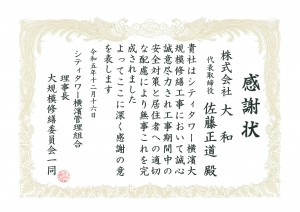 感謝状
株式会社 大和
代表取締役 佐藤正道 殿
貴社はシティタワー横濱大
規模修繕工事において誠心
誠意尽力され工事期間中の
安全対策と居住者への適切
な配慮により無事これを完
成されました
よってここに深く感謝の意
を表します
令和五年十二月十六日
シティタワー横濱管理組合
理事長
大規模修繕委員会一同